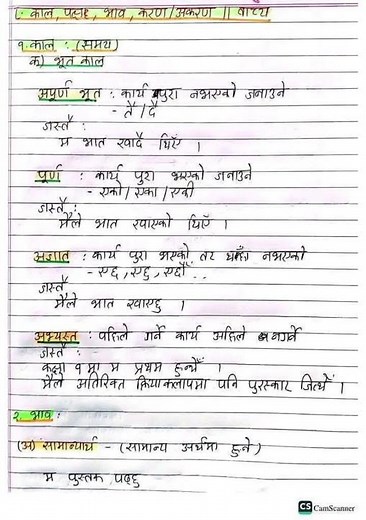 १. काल, पक्ष, भाव, करण/अकरण || वाच्य
१.काल : (समय)
क) भूत काल
अपूर्ण भूत : कार्य पुरा नभएको जनाउने
- तै / दै
जस्तै :
म भात खादै थिएँ ।
पूर्ण : कार्य पुरा भएको जनाउने
- एको / एका / एकी
जस्तै :
मैले भात खाएको थिएँ ।
अज्ञात : कार्य पुरा भएको तर थाहा नभएको
- एछ, एछु, एछौँ . .
जस्तै
मैले भात खाएछु ।
अभ्यस्त : पहिले गर्ने कार्य अहिले नगर्ने
जस्तै :
कक्षा १ मा म प्रथम हुन्थेँ ।
मैले अतिरिक्त क्रियाकलापमा पनि पुरस्कार जित्थेँ ।
२. भाव :
(अ) सामान्यार्थ - (सामान्य अर्थमा हुने)
म पुस्तक पढ्छु
CS CamScanner